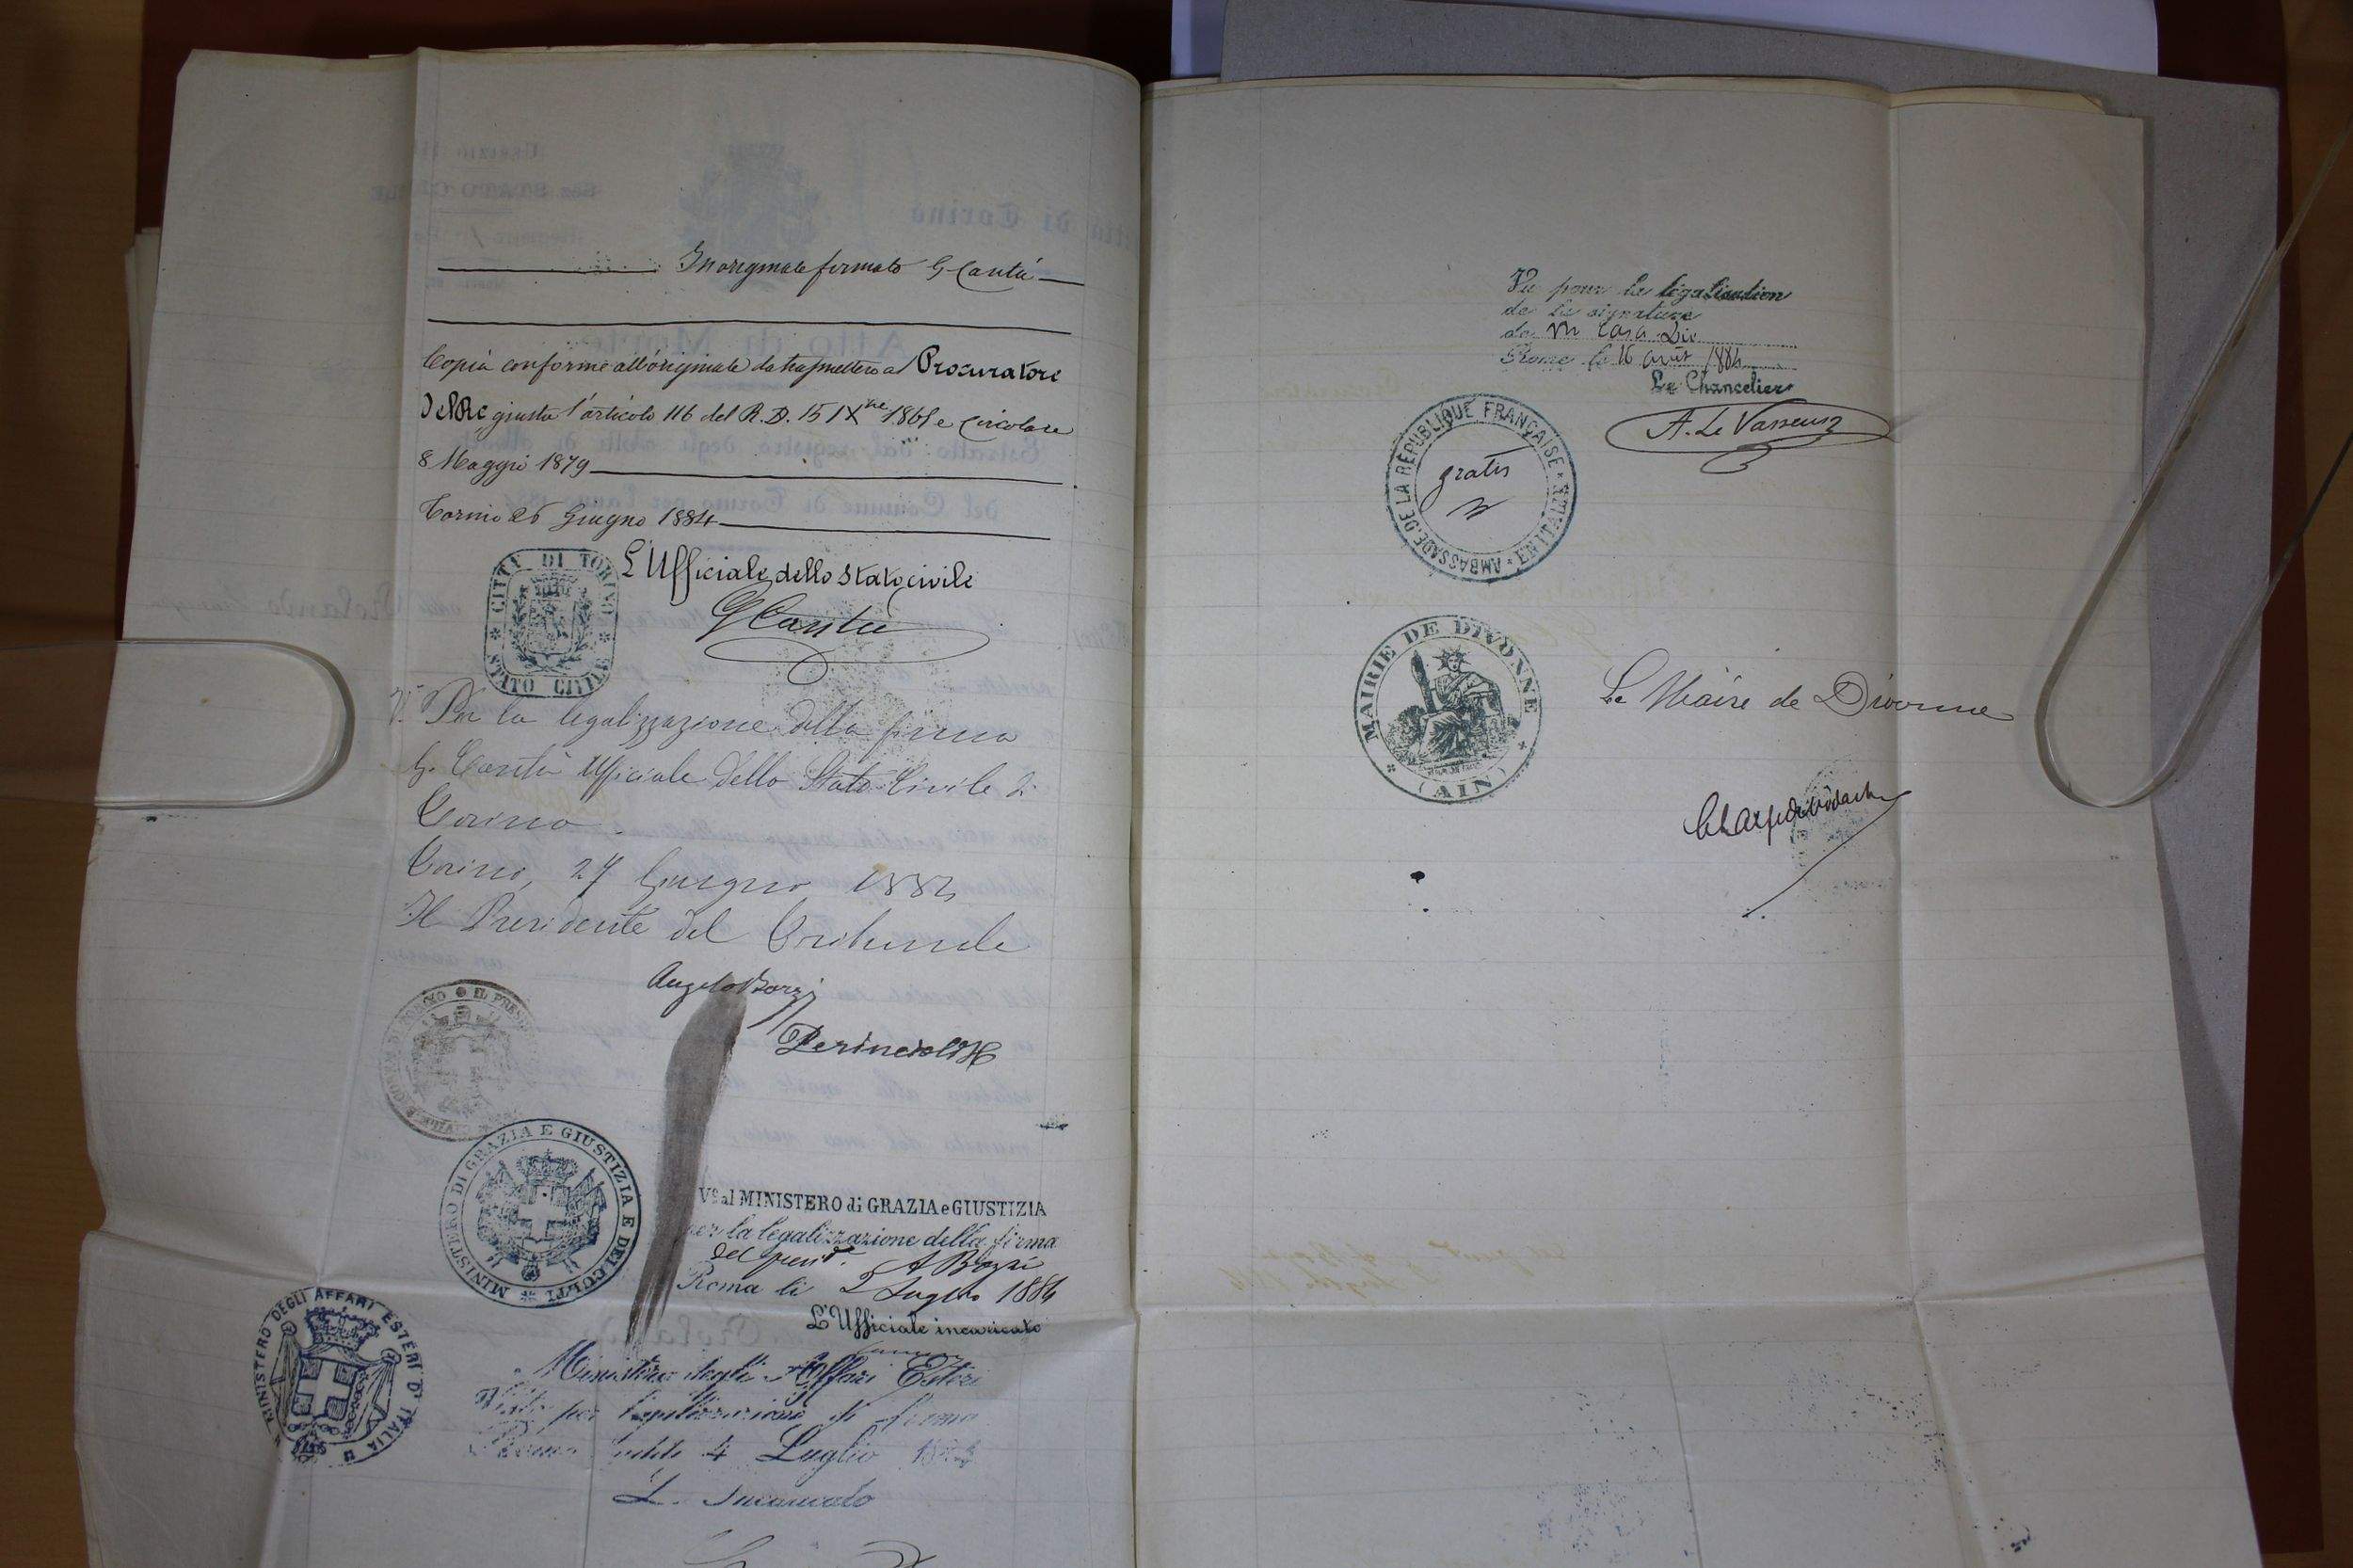 In originale firmato G. Cantù
Copia conforme all'originale da trasmettere al Procuratore
Del Re giusta l'articolo 116 del R. D. 15 IXbre 1865 e Circolare
8 Maggio 1879
Torino 26 Giugno 1884
L'Ufficiale dello Stato civile
CITTÀ DI TORINO * STATO CIVILE *
G Cantù
V. Per la legalizzazione della firma
G. Cantù Ufficiale dello Stato Civile di
Torino.
Torino, 27 Giugno 1884
Il Presidente del Tribunale
Angelo Bozzi
IL PRESI
MINISTERO DI GRAZIA E GIUSTIZIA E DEI CULTI
Vº al MINISTERO di GRAZIA e GIUSTIZIA
per la legalizzazione della firma
del presid. A Bozzi
Roma li 2 Luglio 1884
L'Ufficiale incaricato
MINISTERO DEGLI AFFARI ESTERI D'ITALIA
Ministero degli Affari Esteri
Visto per legalizzazione di firma
Roma addì 4 Luglio 1884
L'Incaricato
Vu pour la légalisation
de la signature
de M Casa
Rome le 16 août 1884
Le Chancelier
A. Le Vasseur
AMBASSADE DE LA RÉPUBLIQUE FRANÇAISE * EN ITALIE *
gratis
MAIRIE DE DIVONNE
(AIN)
Le Maire de Divonne